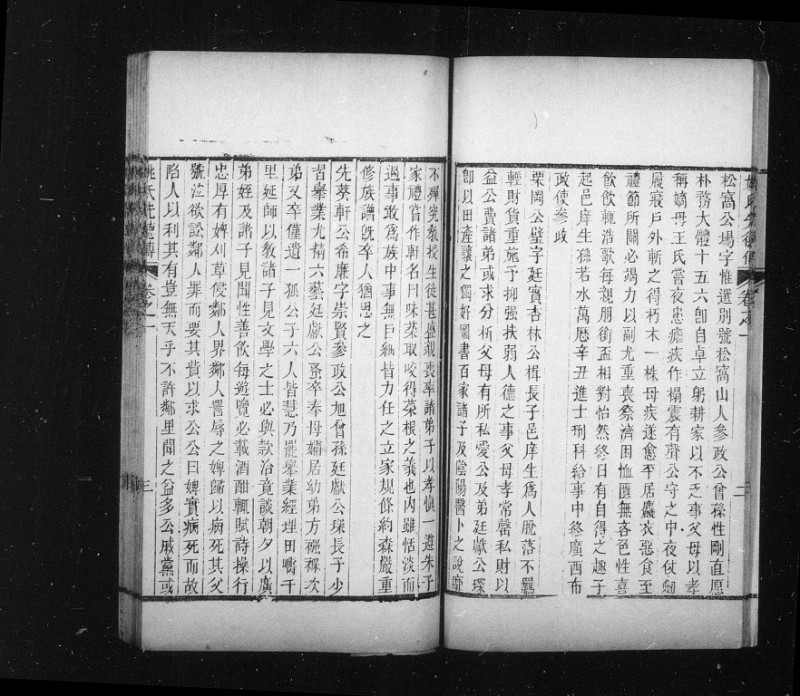 松窩公場字惟選別號松窩山人參政公曾孫性剛直愿
朴務大體十五六卽自卓立躬耕家以不乏事父母以孝
稱嫡母王氏嘗夜患瘧疾作榻震有聲公守之中夜仗劒
履寢戶外斬之得朽木一株母疾遂愈平居麤衣惡食至
禮節所關必竭力以副尤重喪祭濟困恤匱無吝色性喜
飲飲輒浩歌每親朋銜盃相對怡然終日有自得之趣子
起邑庠生孫若水萬厯辛丑進士刑科給事中終廣西布
政使參政
栗岡公璧字廷寳杏林公楫長子邑庠生爲人脫落不羈
輕財貨重施予抑强扶弱人德之事父母孝常罄私財以
益公費諸弟或求分析父母有所私愛公及弟廷獻公琛
卽以田產讓之獨好圖書百家諸子及陰陽醫卜之說靡
不殫究教授生徒甚盛親喪率諸弟子以孝愼一遵朱子
家禮嘗作軒名曰味菜取咬得菜根之義也内雖恬淡而
遇事敢爲族中事無巨細皆力任之立家規條約森嚴重
修族譜旣卒人猶思之
先葵軒公希廉字崇賢參政公旭曾孫廷獻公琛長子少
習舉業尤精六藝廷獻公蚤卒奉母孀居幼弟方襁褓次
弟又卒僅遺一孤公子六人皆慧乃罷舉業經理田疇千
里延師以敎諸子見文學之士必與款洽竟談朝夕以廣
弟姪及諸子見聞性善飲每遊覽必載酒酣輒賦詩操行
忠厚有婢刈草侵鄰人界鄰人詈辱之婢歸以病死其父
號泣欲訟鄰人罪而要其貲以求公公曰婢實病死而故
陷人以利其有豈無天乎不許鄰里聞之益多公戚黨或
姚氏先德傳 卷之一 三